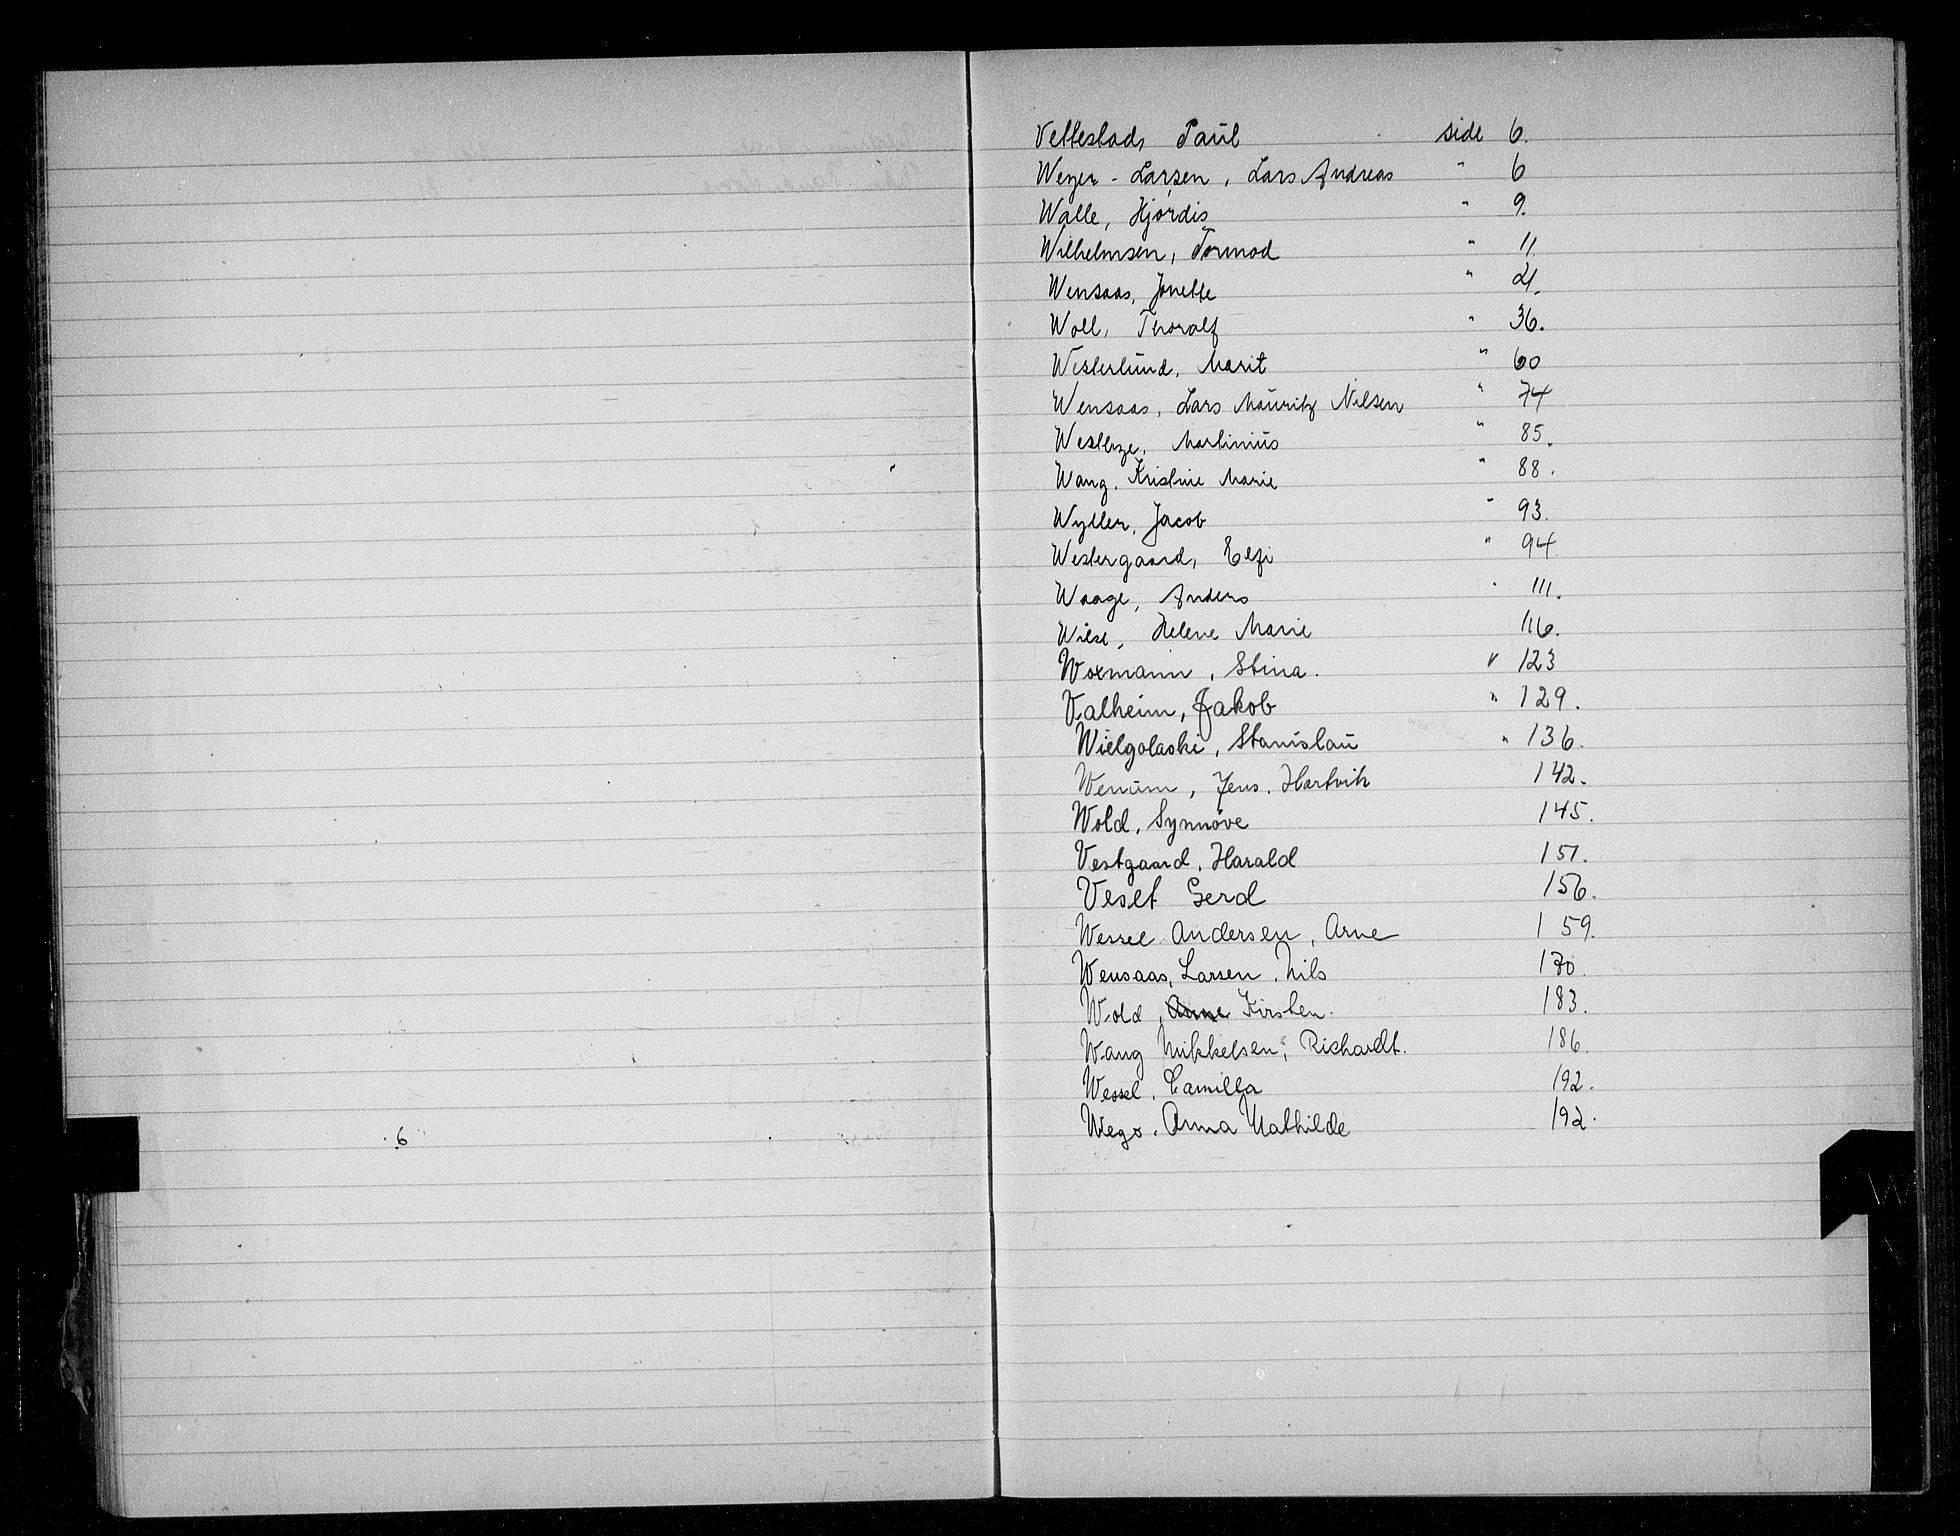 6
Vettestads Paul side 6.
Weyer - Larsen, Lars Andreas " 6
Walle, Hjørdis " 9.
Wilhelmsen, Tormod " 11
Wensaas, Jonette " 21.
Woll, Thoralf " 36.
Westerlund, Marit " 60
Wensaas, Lars Mauritz Nilsen " 74
Westbye, Martinius " 85.
Wang, Kristine Marie " 88.
Wyller, Jacob " 93.
Westergaard, Elfi " 94
Waage, Anders " 111.
Wiese, Helene Marie 116.
Woxmann, Stina. " 123
Valheim, Jakob " 129.
Wielgolaski, Stanislau " 136.
Wenum, Jens. Hartvik 142.
Wold, Synnøve 145.
Vestgaard, Harald 151.
Veset Gerd 156.
Wessel Andersen, Arne 159.
Wensaas, Larsen, Nils 170.
Wold, Kirsten. 183.
Wang Mikkelsen, Richardt. 186.
Wessel, Camilla 192.
Wego, Anna Mathilde 192.
W